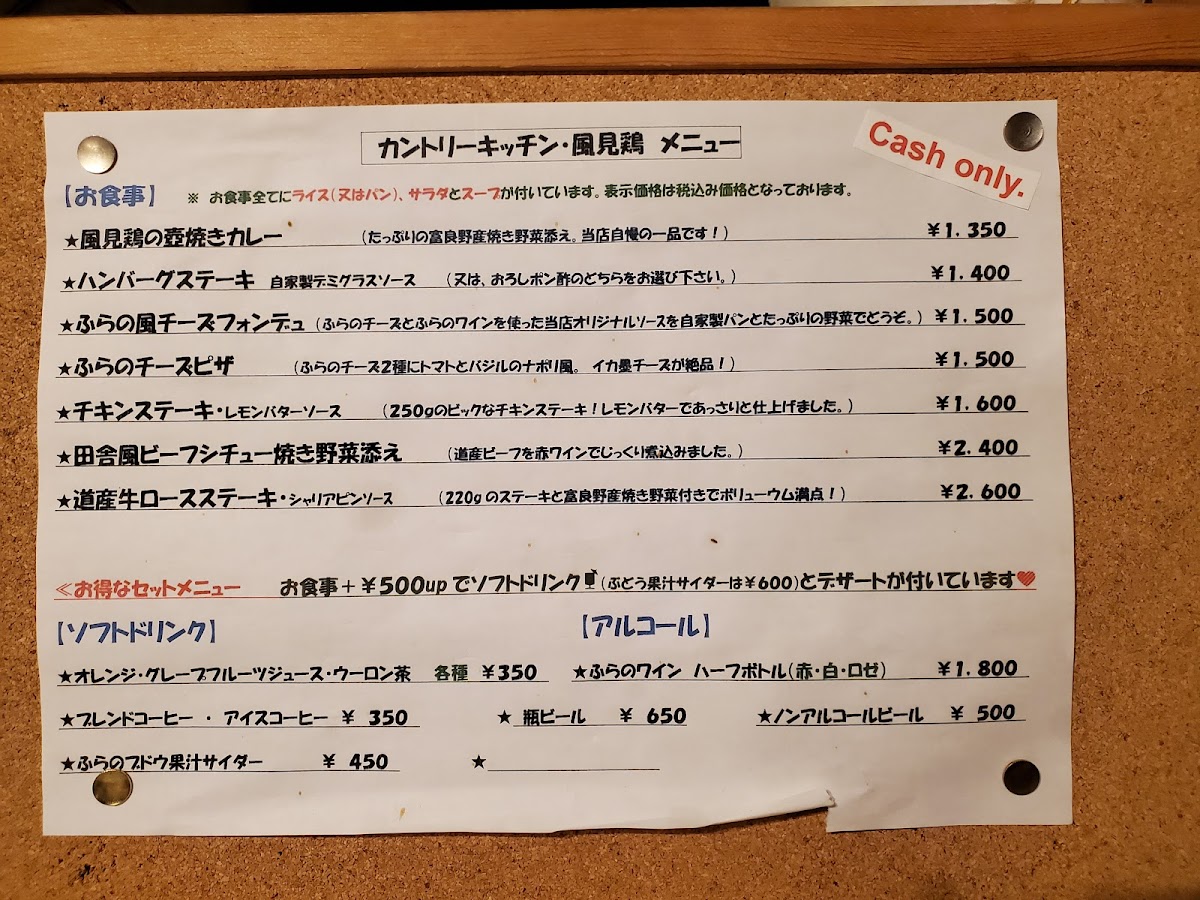 カントリーキッチン・風見鶏 メニュー
Cash only.
【お食事】 ※ お食事全てにライス(又はパン)、サラダとスープが付いています。表示価格は税込み価格となっております。
★風見鶏の壺焼きカレー (たっぷりの富良野産焼き野菜添え。当店自慢の一品です!) ¥1.350
★ハンバーグステーキ 自家製デミグラスソース (又は、おろしポン酢のどちらをお選び下さい。) ¥1.400
★ふらの風チーズフォンデュ (ふらのチーズとふらのワインを使った当店オリジナルソースを自家製パンとたっぷりの野菜でどうぞ。) ¥1.500
★ふらのチーズピザ (ふらのチーズ2種にトマトとバジルのナポリ風。 イカ墨チーズが絶品!) ¥1.500
★チキンステーキ・レモンバターソース (250gのビックなチキンステーキ!レモンバターであっさりと仕上げました。) ¥1.600
★田舎風ビーフシチュー焼き野菜添え (道産ビーフを赤ワインでじっくり煮込みました。) ¥2.400
★道産牛ロースステーキ・シャリアピンソース (220gのステーキと富良野産焼き野菜付きでボリューウム満点!) ¥2.600
≪お得なセットメニュー お食事+¥500up でソフトドリンク(ぶどう果汁サイダーは¥600)とデザートが付いています♥
【ソフトドリンク】 【アルコール】
★オレンジ・グレープフルーツジュース・ウーロン茶 各種 ¥350 ★ふらのワイン ハーフボトル(赤・白・ロゼ) ¥1.800
★ブレンドコーヒー ・ アイスコーヒー ¥ 350 ★ 瓶ビール ¥ 650 ★ノンアルコールビール ¥ 500
★ふらのブドウ果汁サイダー ¥ 450 ★